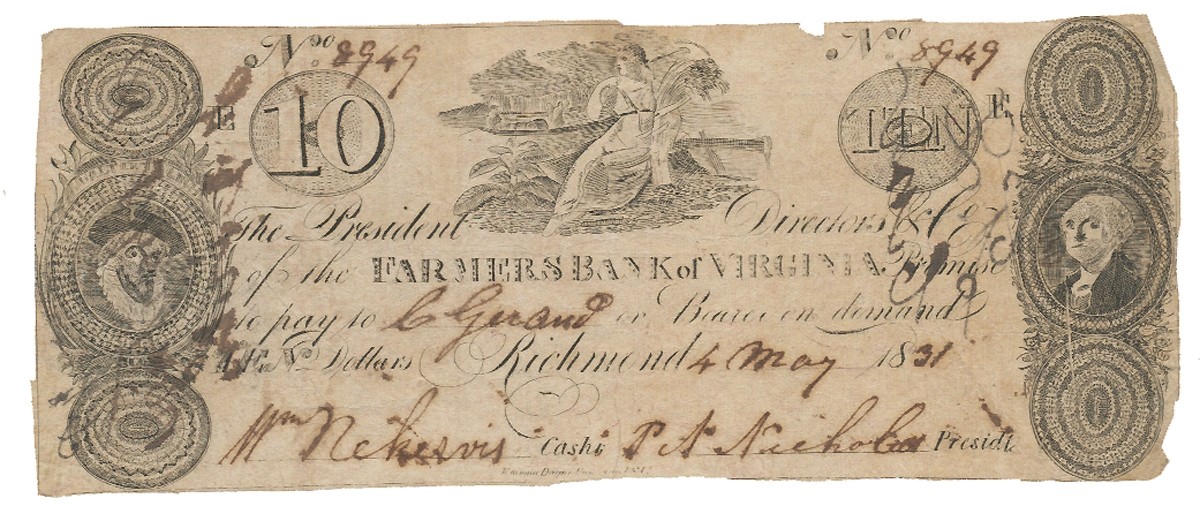 No. 8949 No. 8949
E 10 TEN E
The President Directors & Co.
of the FARMERS BANK of VIRGINIA Promise
to pay to C Girand or Bearer on demand
TEN Dollars Richmond 4 May 1831
Wm Nekervis Cashr. P N Nicholas Presidt.